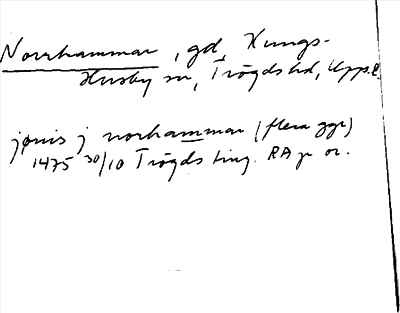 Norrhammar, gd, Kungs-
Husby sn, Trögds hd, Upps.l.
jønis j norhammar (flera ggr)
1475 30/10 Trögds ting. RA p or.